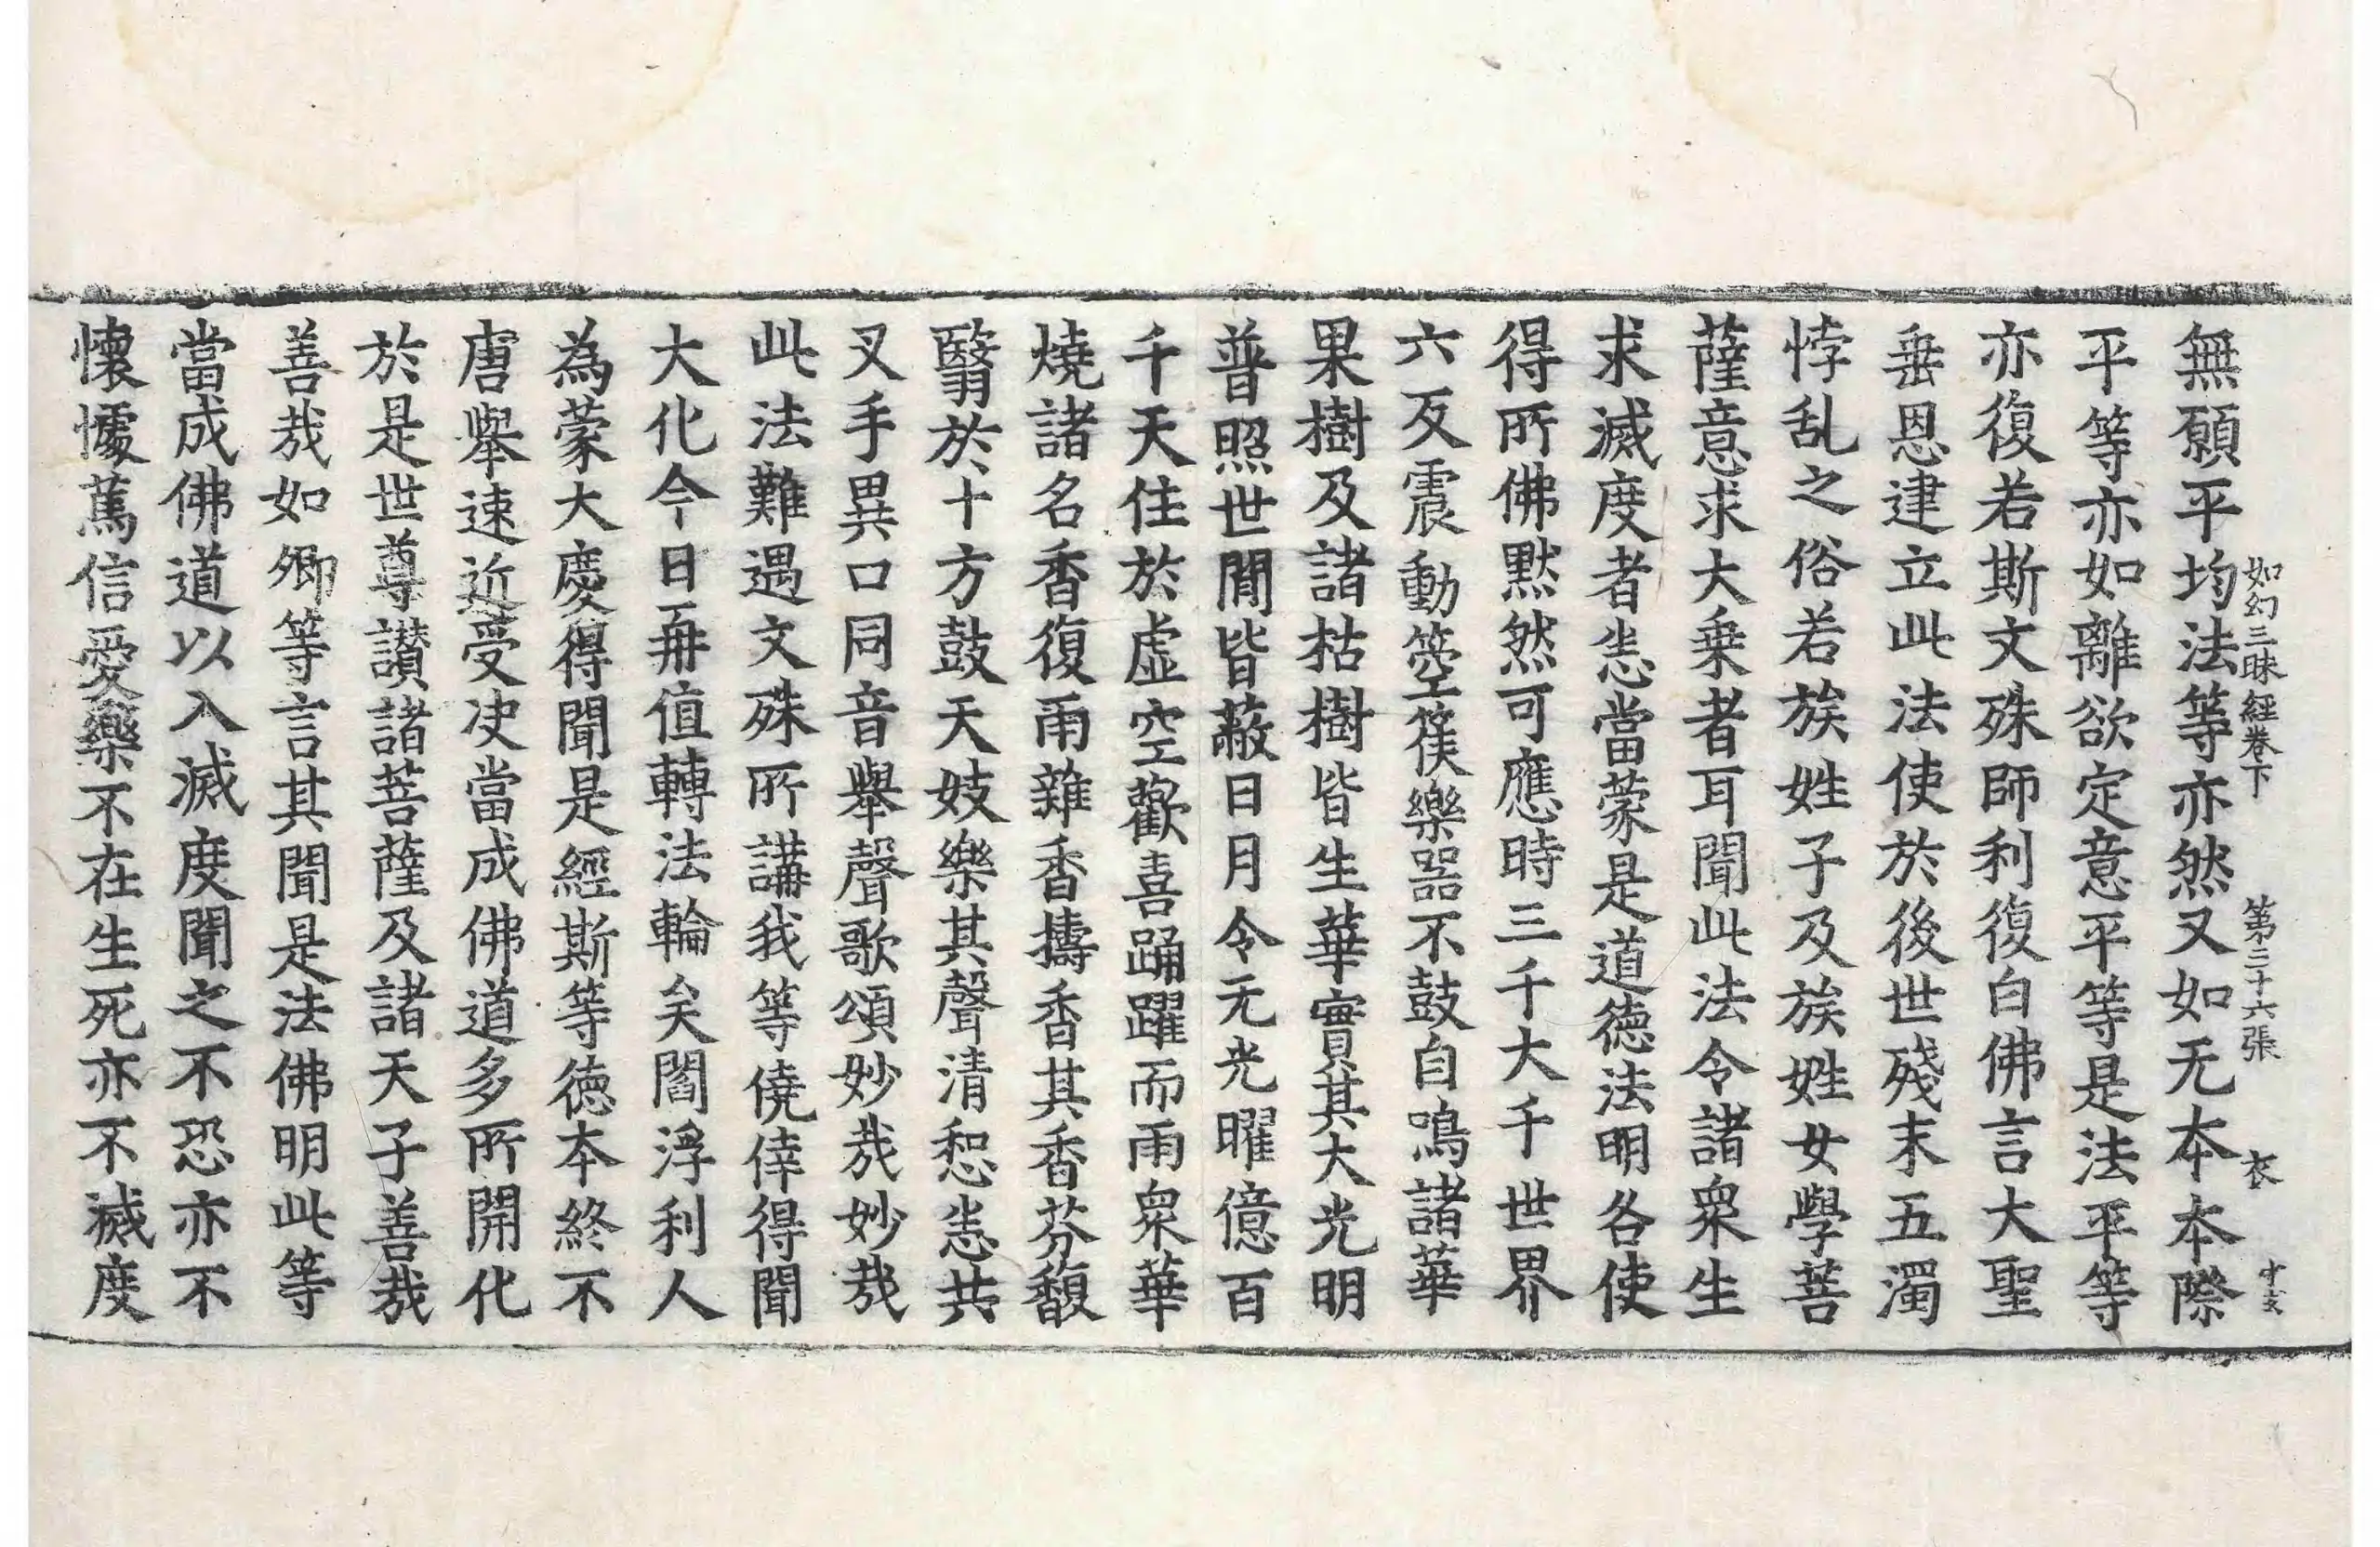 如幻三昧經卷下 第三十六張 衣
無願平均法等亦然又如无本本際
平等亦如離欲定意平等是法平等
亦復若斯文殊師利復白佛言大聖
垂恩建立此法使於後世殘末五濁
悖乱之俗若族姓子及族姓女學菩
薩意求大乗者耳聞此法令諸衆生
求滅度者恣當蒙是道德法明各使
得所佛默然可應時三千大千世界
六反震動箜篌樂器不鼓自鳴諸華
果樹及諸枯樹皆生華實其大光明
普照世閒皆蔽日月令无光曜億百
千天住於虛空歡喜踊躍而雨衆華
燒諸名香復雨雜香擣香其香芬馥
翳於十方鼓天妓樂其聲清和悉共
叉手異口同音舉聲歌頌妙哉妙哉
此法難遇文殊所講我等僥倖得聞
大化今日再值轉法輪矣閻浮利人
為蒙大慶得聞是經斯等德本終不
唐舉速近受决當成佛道多所開化
於是世尊讃諸菩薩及諸天子善哉
善哉如卿等言其聞是法佛明此等
當成佛道以入滅度聞之不恐亦不
懷懅篤信愛樂不在生死亦不滅度